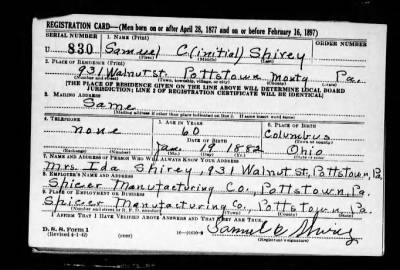 REGISTRATION CARD—(Men born on or after April 28, 1877 and on or before February 16, 1897)
SERIAL NUMBER 1. NAME (Print) ORDER NUMBER
U 830 Samuel C(initial) Shirey
(First) (Middle) (Last)
2. PLACE OF RESIDENCE (Print)
931 Walnut st. Pottstown Montg Pa.
(Number and street) (Town, township, village, or city) (County) (State)
[THE PLACE OF RESIDENCE GIVEN ON THE LINE ABOVE WILL DETERMINE LOCAL BOARD
JURISDICTION; LINE 2 OF REGISTRATION CERTIFICATE WILL BE IDENTICAL]
3. MAILING ADDRESS
Same
[Mailing address if other than place indicated on line 2. If same insert word same]
4. TELEPHONE 5. AGE IN YEARS 6. PLACE OF BIRTH
none 60 Columbus
DATE OF BIRTH (Town or county)
Jan. 19 1882 Ohio
(Exchange) (Number) (Mo.) (Day) (Yr.) (State or country)
7. NAME AND ADDRESS OF PERSON WHO WILL ALWAYS KNOW YOUR ADDRESS
Mrs. Ida Shirey, 931 Walnut St, Pottstown, Pa
8. EMPLOYER'S NAME AND ADDRESS
Spicer Manufacturing Co., Pottstown, Pa.
9. PLACE OF EMPLOYMENT OR BUSINESS
Spicer Manufacturing Co, Pottstown, Pa.
(Number and street or R. F. D. number) (Town) (County) (State)
I AFFIRM THAT I HAVE VERIFIED ABOVE ANSWERS AND THAT THEY ARE TRUE.
D. S. S. Form 1
(Revised 4-1-42) (over)
Samuel C Shirey
(Registrant's signature)